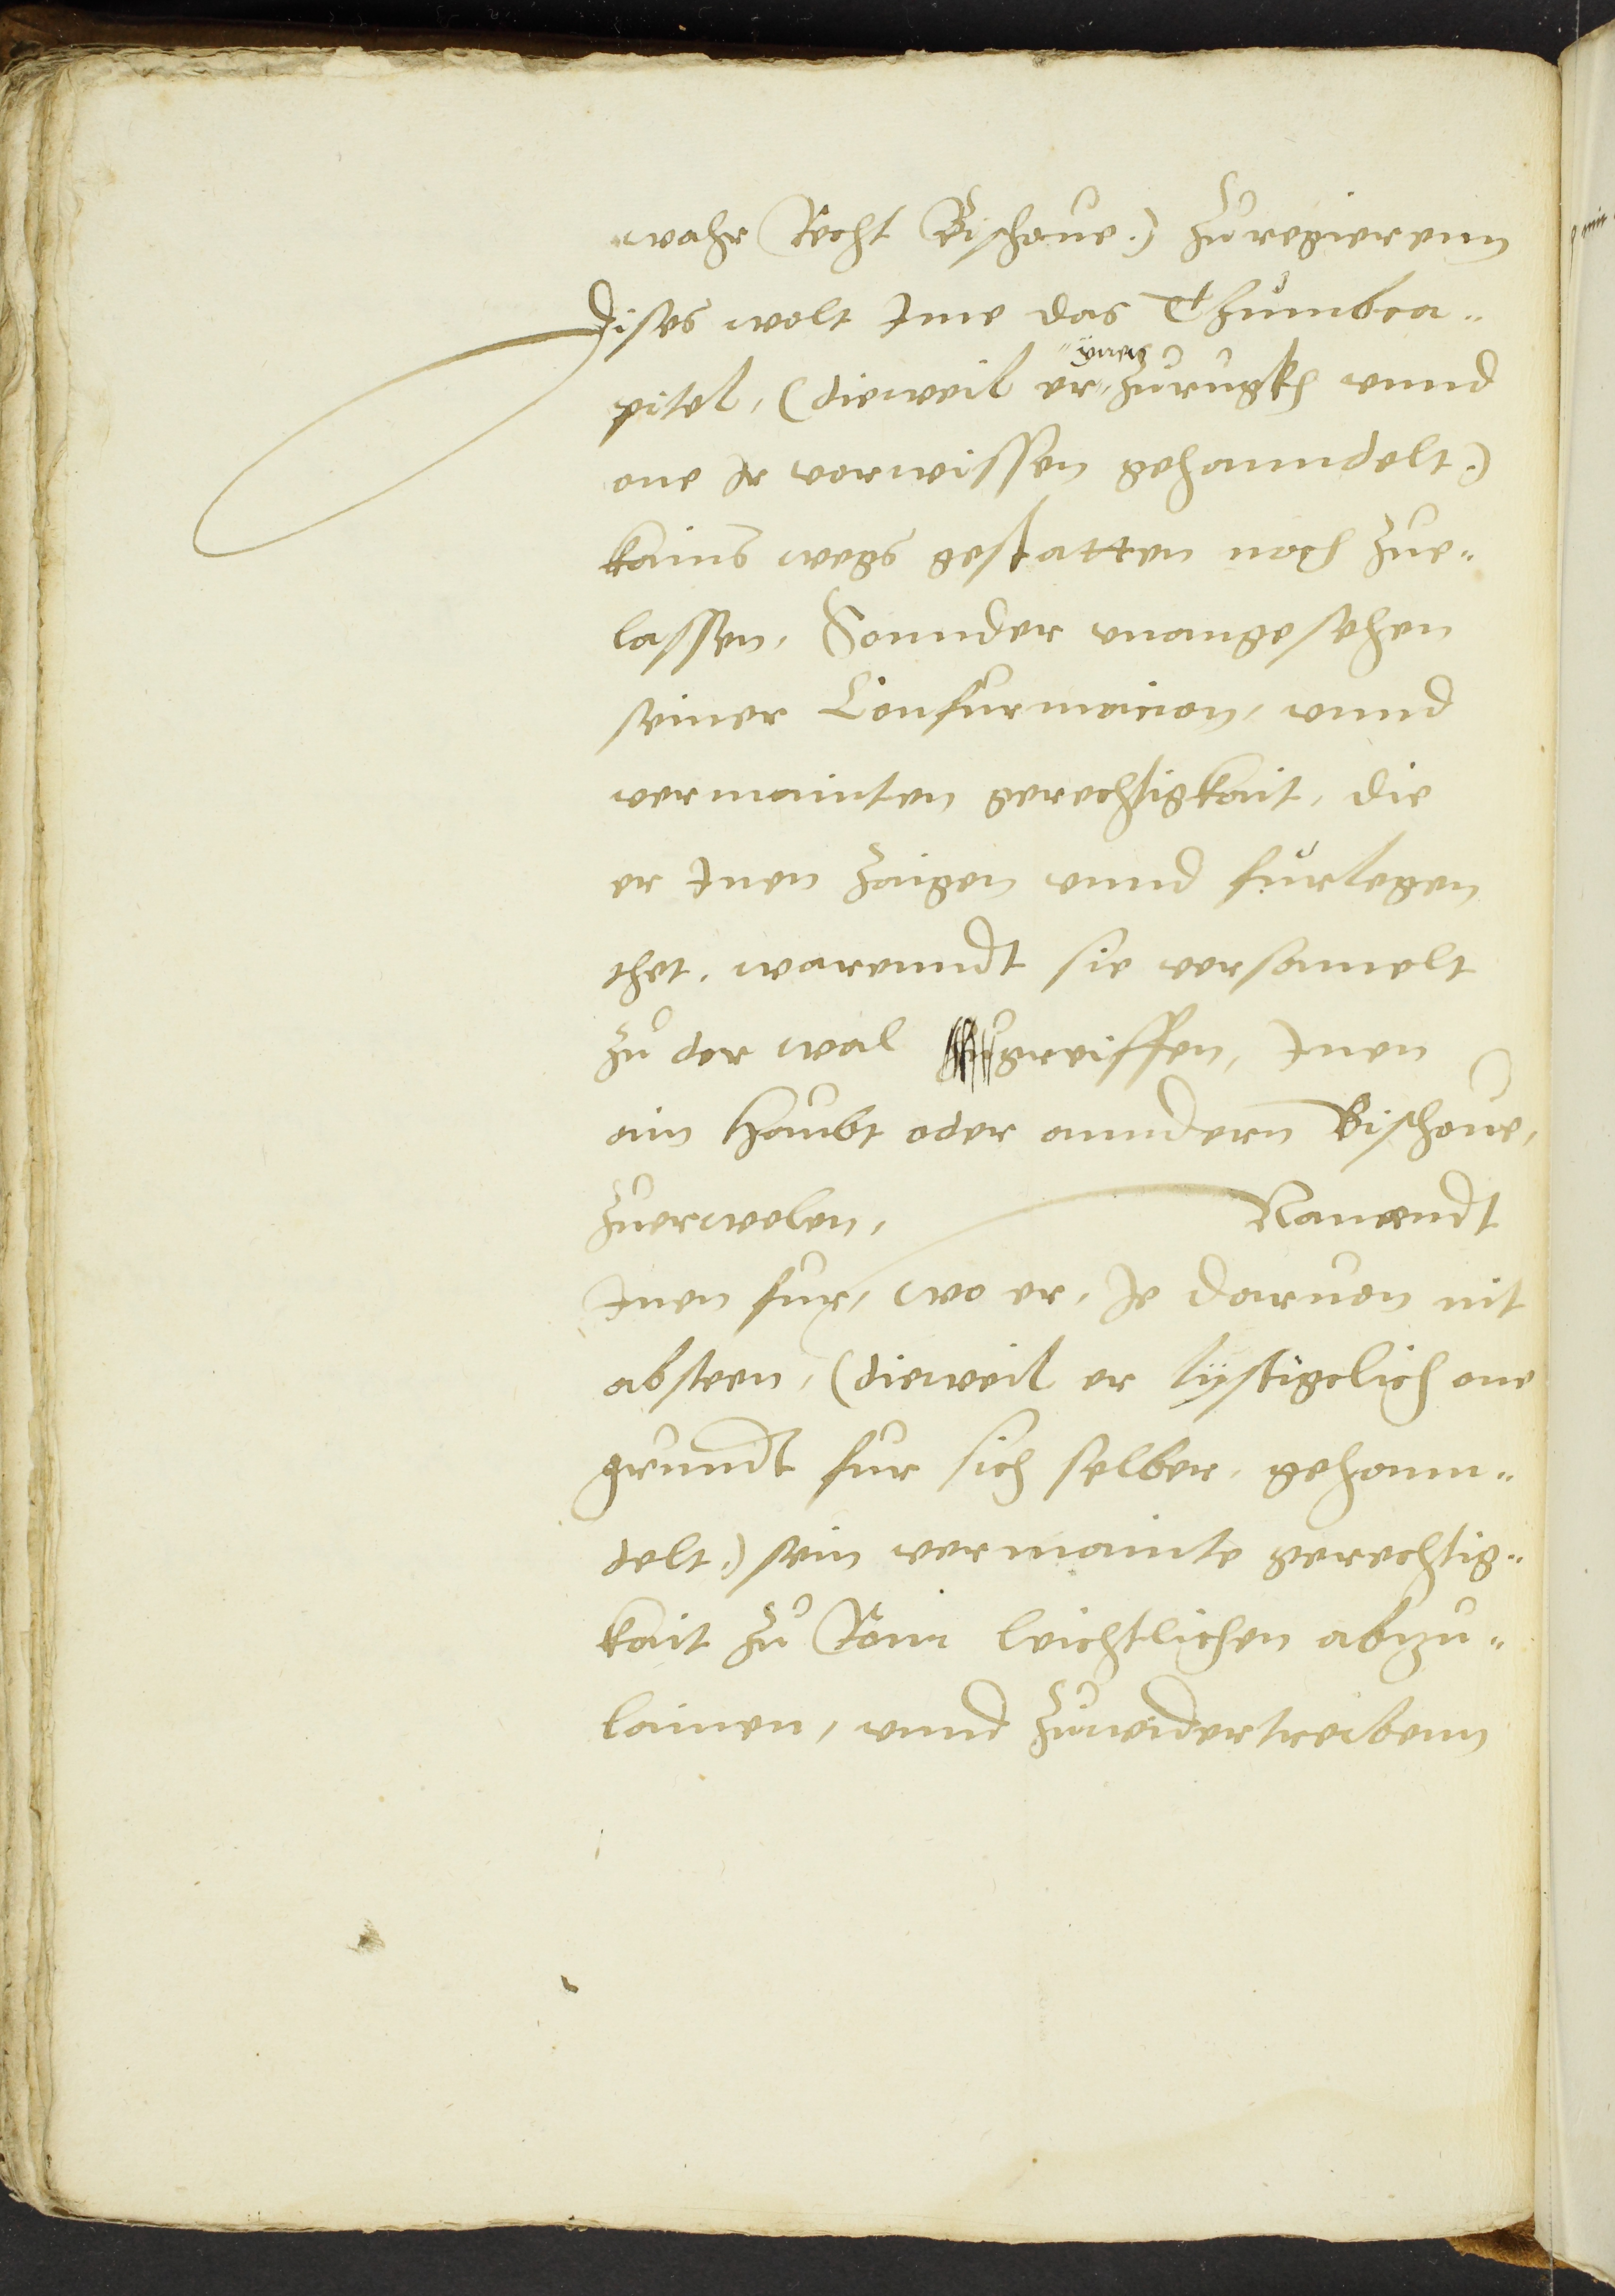 wahr Recht Bischoue (:) zuregierenn
Dises wolt Ime das Thumbca¬
pitel, (dieweil er, Inen zurugkh vnnd
one Ir vorwissen gehanndelt:)
kains wegs gestatten noch zue¬
lassen, Sonnder vnangesehen
seiner Confurmacion, vnnd
vermainten gerechtigkait, die
er Inen zaigen vnnd furlegen
thet, warenndt sie versamelt
zu der wal zugreiffen, Inen
ain Haubt oder anndern Bischoue,
zuerwelen, Namendt
Inen fur, wo er, Ie daruon nit
absteen, (dieweil er lüstigclich one
grundt fur sich selber, gehann¬
delt:) sein vermainte gerechtig¬
kait zu Rom leichtlichen abzu¬
lainen, vnnd zuwidertreibenn